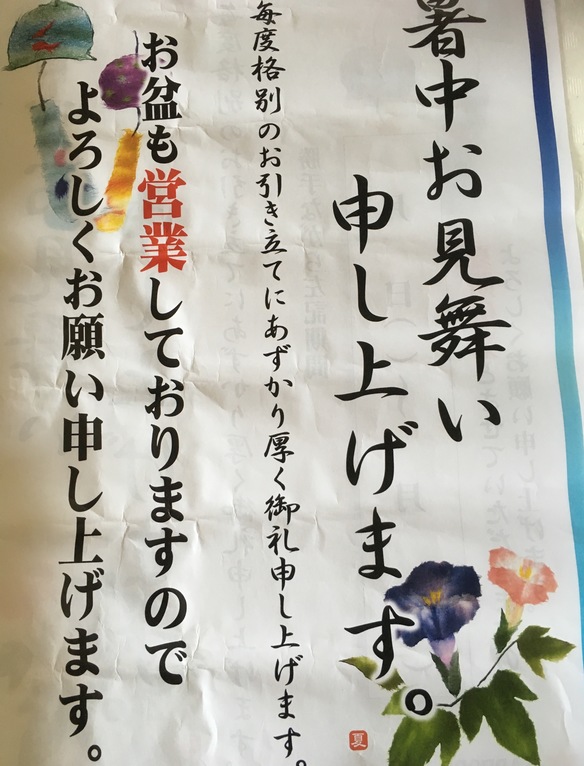 暑中お見舞い
申し上げます。
毎度格別のお引き立てにあずかり厚く御礼申し上げます。
お盆も営業しておりますので
よろしくお願い申し上げます。
夏